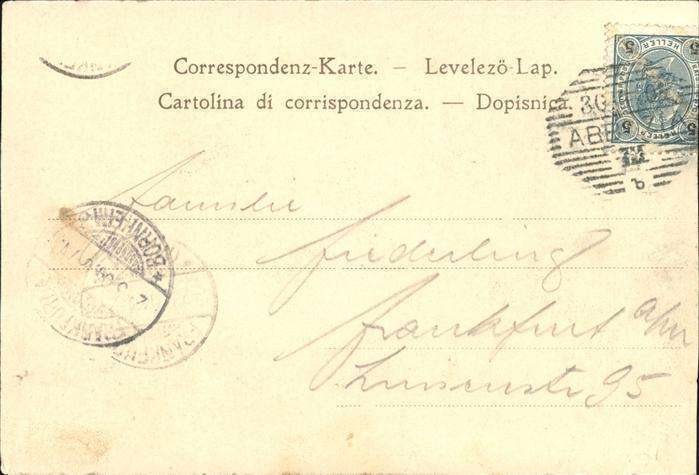 Correspondenz-Karte. — Levelezö-Lap.
Cartolina di corrispondenza. — Dopisnica.
5 HELLER 5
30
AB
b
Familie
frankfurt a/m
Luisenstr 95
BORNHEIM
FRANKFURT